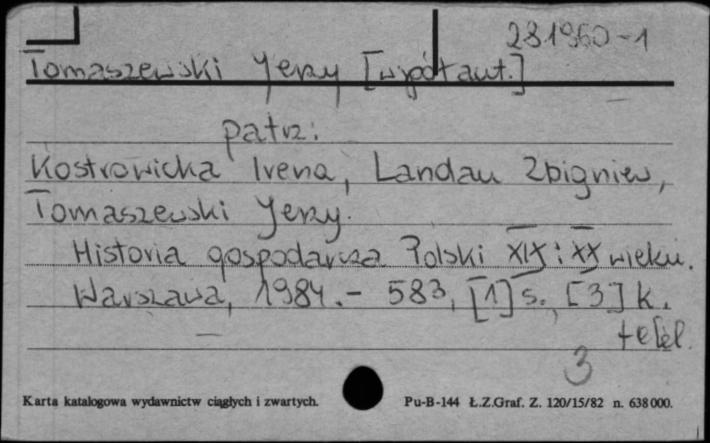 281960-1
Tomaszewski Jerzy [współaut.]
patrz:
Kostrowicka Irena, Landau Zbigniew,
Tomaszewski Jerzy.
Historia gospodarcza Polski XIX i XX wieku.
Warszawa, 1984.- 583, [1] s. [3] k.
tabl.
3
Karta katalogowa wydawnictw ciągłych i zwartych.
Pu-B-144 Ł.Z.Graf. Z. 120/15/82 n. 638 000.